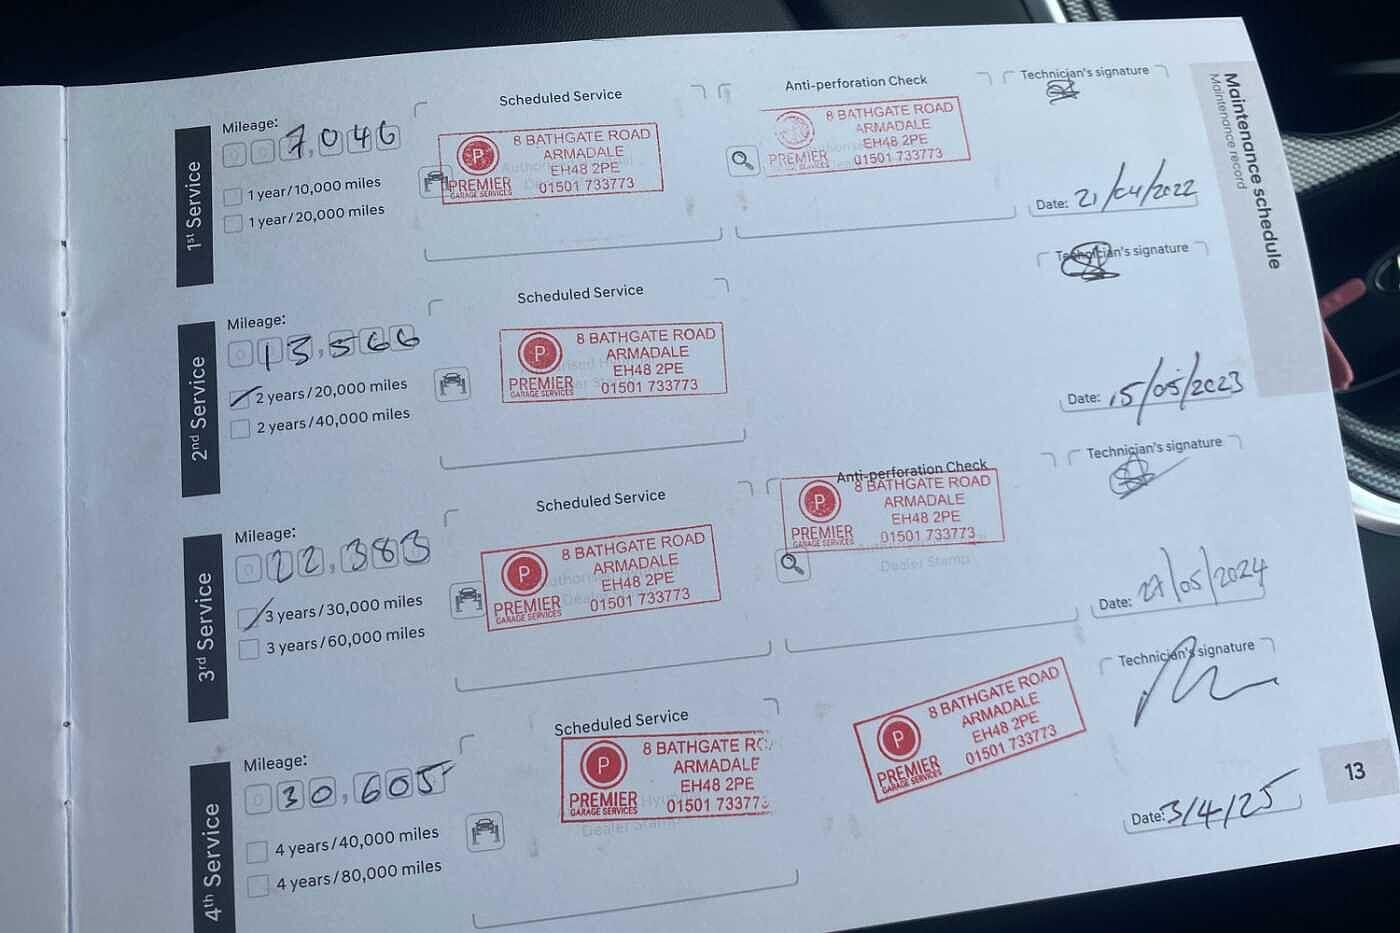 Maintenance schedule
Maintenance record
1st Service
Mileage:
7,046
1 year/10,000 miles
1 year/20,000 miles
Scheduled Service
P
PREMIER
GARAGE SERVICES
8 BATHGATE ROAD
ARMADALE
EH48 2PE
01501 733773
Anti-perforation Check
PREMIER
8 BATHGATE ROAD
ARMADALE
EH48 2PE
01501 733773
Technician's signature
Date: 21/04/2022
2nd Service
Mileage:
013,566
2 years/20,000 miles
2 years/40,000 miles
Scheduled Service
P
PREMIER
GARAGE SERVICES
8 BATHGATE ROAD
ARMADALE
EH48 2PE
01501 733773
Technician's signature
Date: 15/05/2023
3rd Service
Mileage:
022,383
3 years/30,000 miles
3 years/60,000 miles
Scheduled Service
P
PREMIER
GARAGE SERVICES
8 BATHGATE ROAD
ARMADALE
EH48 2PE
01501 733773
Anti-perforation Check
P
PREMIER
GARAGE SERVICES
8 BATHGATE ROAD
ARMADALE
EH48 2PE
01501 733773
Dealer Stamp
Technician's signature
Date: /05/2024
4th Service
Mileage:
030,605
4 years/40,000 miles
4 years/80,000 miles
Scheduled Service
P
PREMIER
GARAGE SERVICES
8 BATHGATE
ARMADALE
EH48 2PE
01501 733773
Dealer Stamp
P
PREMIER
GARAGE SERVICES
8 BATHGATE ROAD
ARMADALE
EH48 2PE
01501 733773
Technician's signature
Date: 3/4/25
13